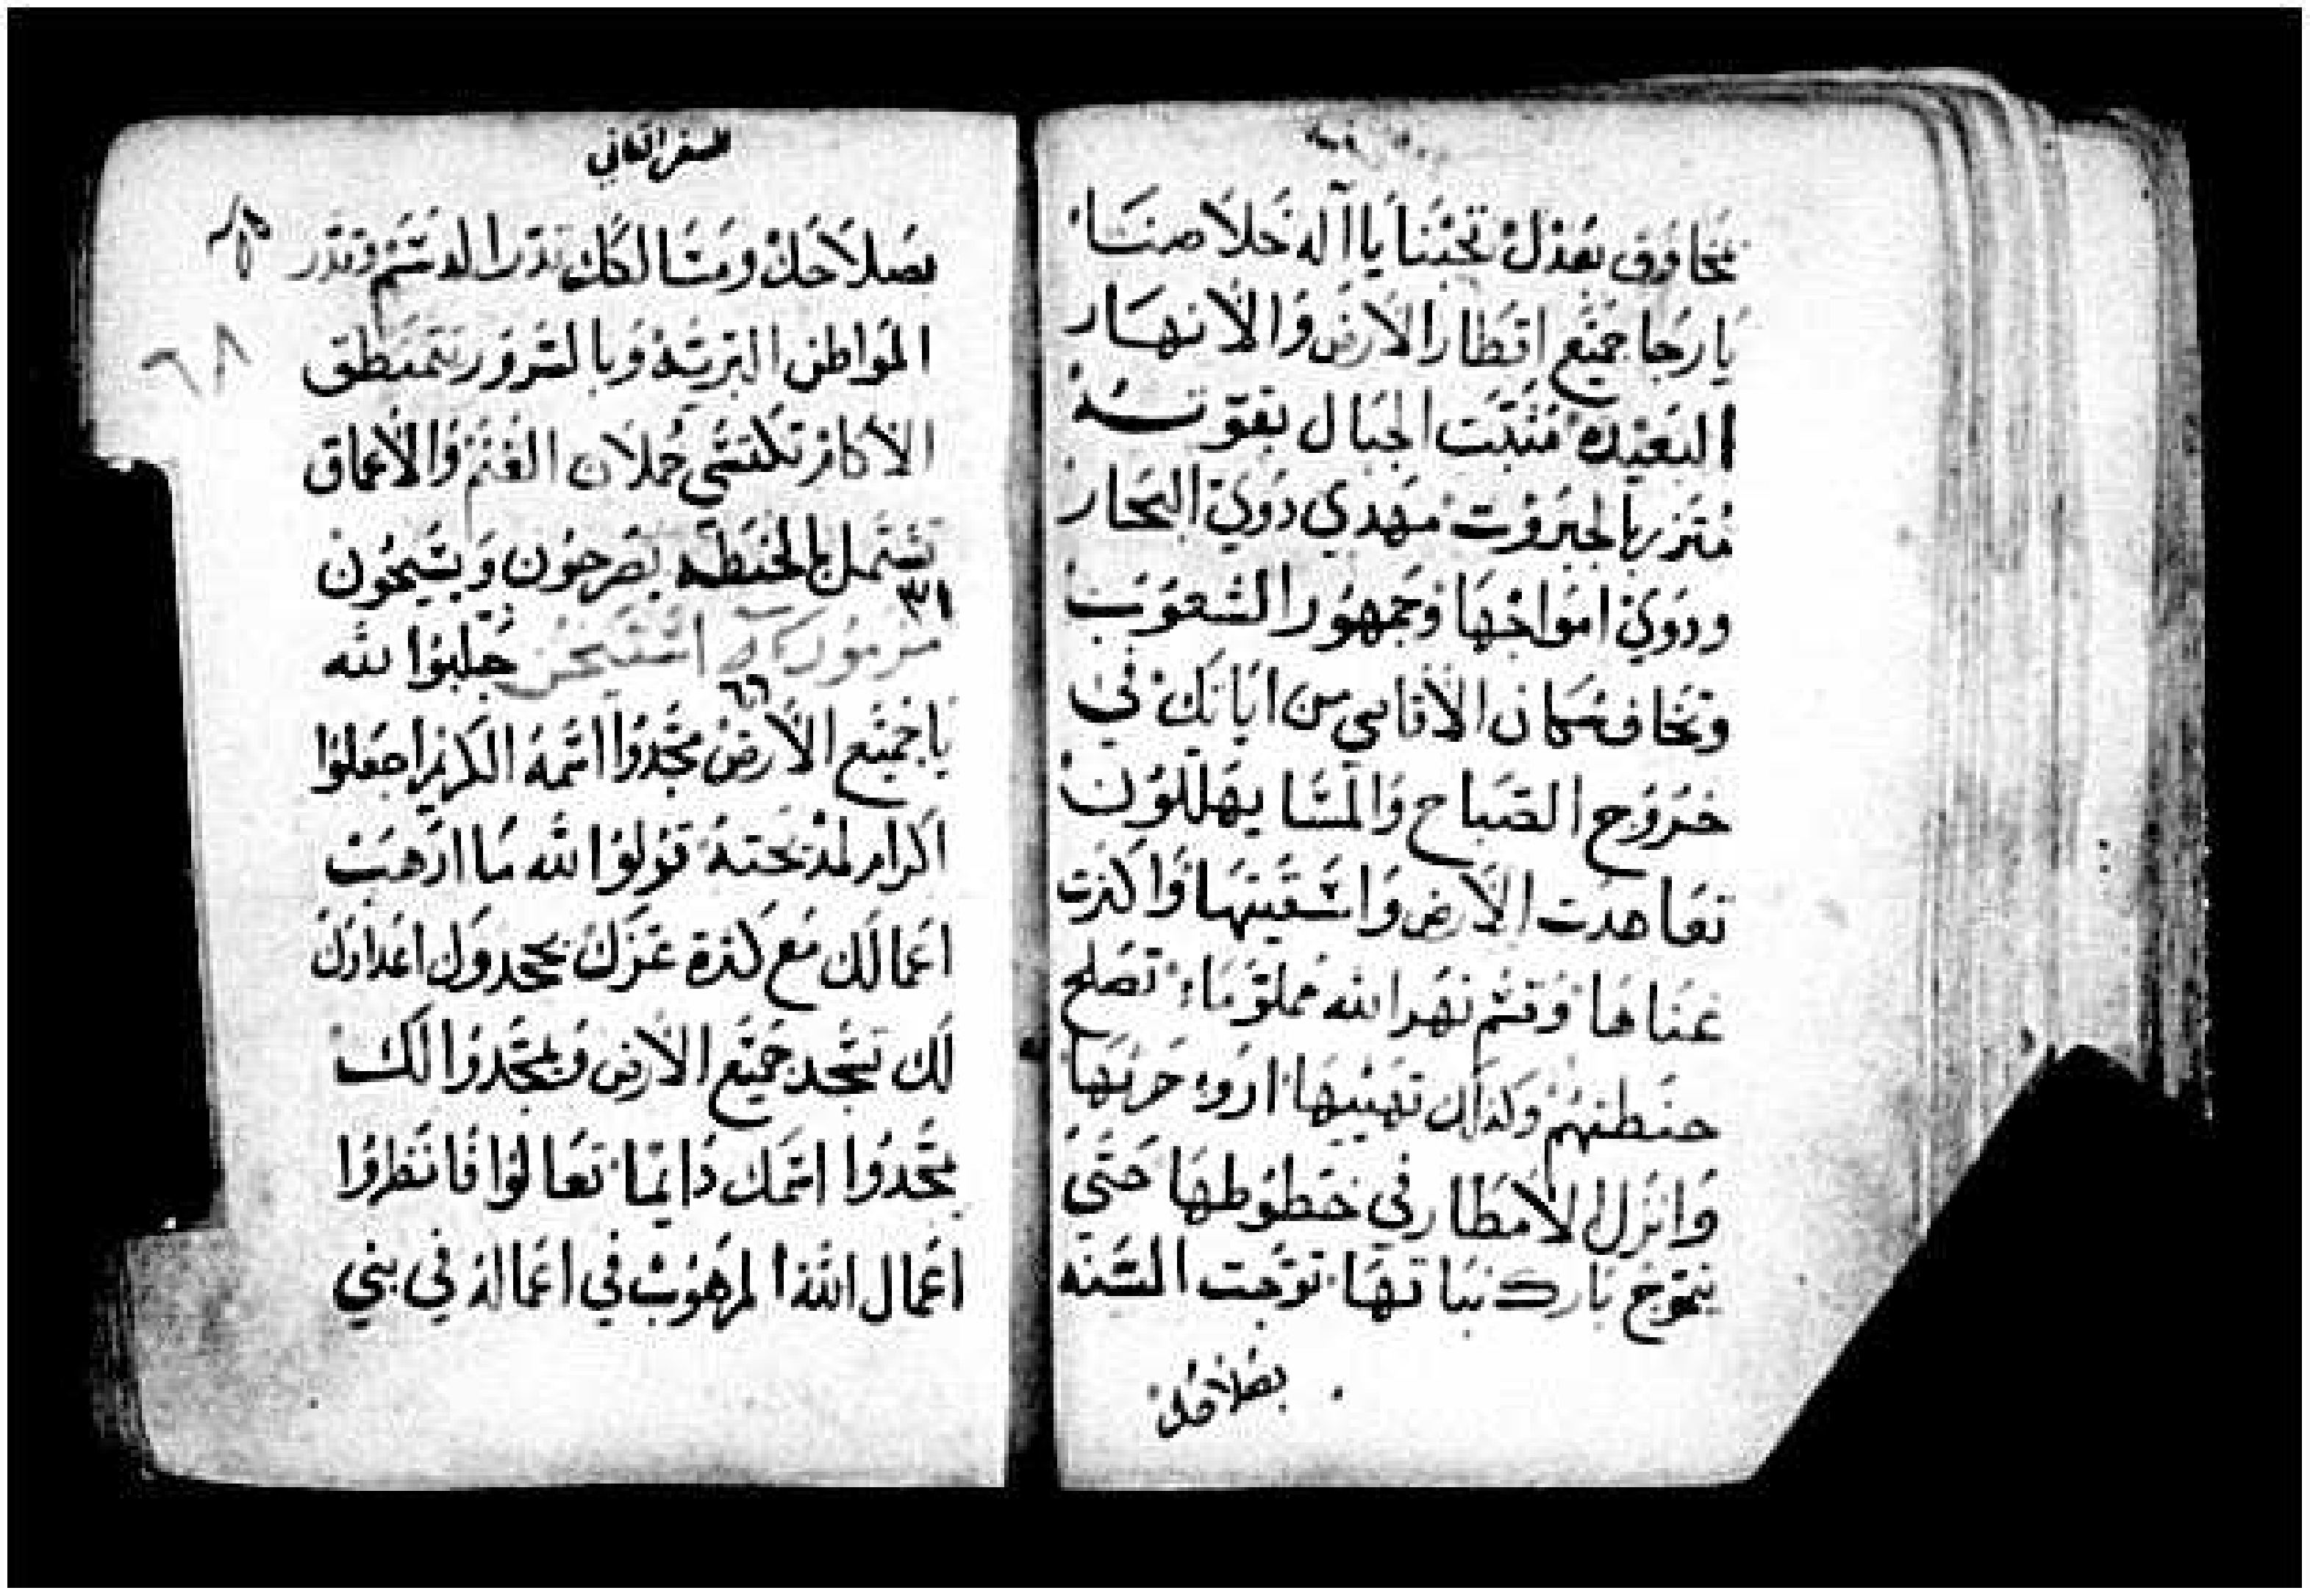 بمخاوف بعدل تجبنا يا اله خلاصنا
يا رجا جميع اقطار الارض والانهار
البعيده مثبت الجبال بقوته
متزر بالجبروت مهدي دوي البحار
ودوي امواجها وجمهور الشعوب
وتخاف سكان الاقاصي من اياتك في
خروج الصباح والمسا يهللون
تعاهدت الارض واسقيتها واكثرت
غناها وقسم نهر الله مملو ماء تصلح
حنطتهم وكذلك تهييها ارو حرثها
وانزل الامطار في خطوطها حتي
يتموج بارك نباتها توجت السنه
بصلاحك
السفر الثاني
بصلاحك ومسالكك تدر الدسم وتدر
المواطن البريه وبالسرور تتمنطق
الاكام تكتسي حملان الغنم والاعماق
تشتمل بالحنطه يفرحون ويسبحون
مزمور
جلبوا لله
٦٥
يا جميع الارض مجدوا اسمه الكريم اجعلوا
اكرام لمدحته قولوا لله ما ارهب
اعمالك مع كثرة عزك يجحدون اعداوك
لك تسجد جميع الارض ويمجدوا لك
يمجدوا اسمك دايما تعالوا فانظروا
اعمال الله المرهوب في اعماله في بني